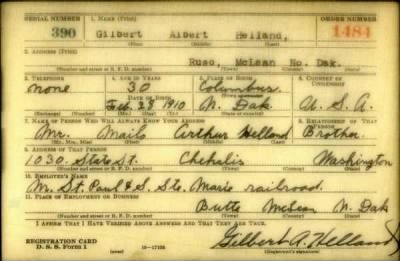 SERIAL NUMBER 1. NAME (Print) ORDER NUMBER
390 Gilbert Albert Helland, 1484
(First) (Middle) (Last)
2. ADDRESS (Print)
Ruso, McLean No. Dak.
(Number and street or R. F. D. number) (Town) (County) (State)
3. TELEPHONE 4. AGE IN YEARS 5. PLACE OF BIRTH 6. COUNTRY OF CITIZENSHIP
none 30 Columbus
DATE OF BIRTH (Town or county)
Feb. 28 1910 N. Dak U. S. A.
(Exchange) (Number) (Mo.) (Day) (Yr.) (State or country)
7. NAME OF PERSON WHO WILL ALWAYS KNOW YOUR ADDRESS 8. RELATIONSHIP OF THAT PERSON
Mr. Arthur Helland Brother
(Mr., Mrs., Miss) (First) (Middle) (Last)
9. ADDRESS OF THAT PERSON
1030. State St. Chehalis Washington
(Number and street or R. F. D. number) (Town) (County) (State)
10. EMPLOYER'S NAME
M. St. Paul & S. Ste. Marie railroad.
11. PLACE OF EMPLOYMENT OR BUSINESS
Butte McLean N. Dak
(Number and street or R. F. D. number) (Town) (County) (State)
I AFFIRM THAT I HAVE VERIFIED ABOVE ANSWERS AND THAT THEY ARE TRUE.
REGISTRATION CARD
D. S. S. Form 1 (over) 16-17105 Gilbert A. Helland